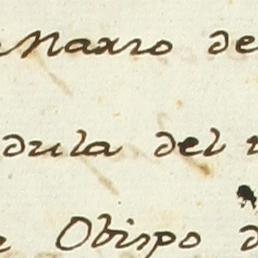 Maxro de
dula del
Obispo d